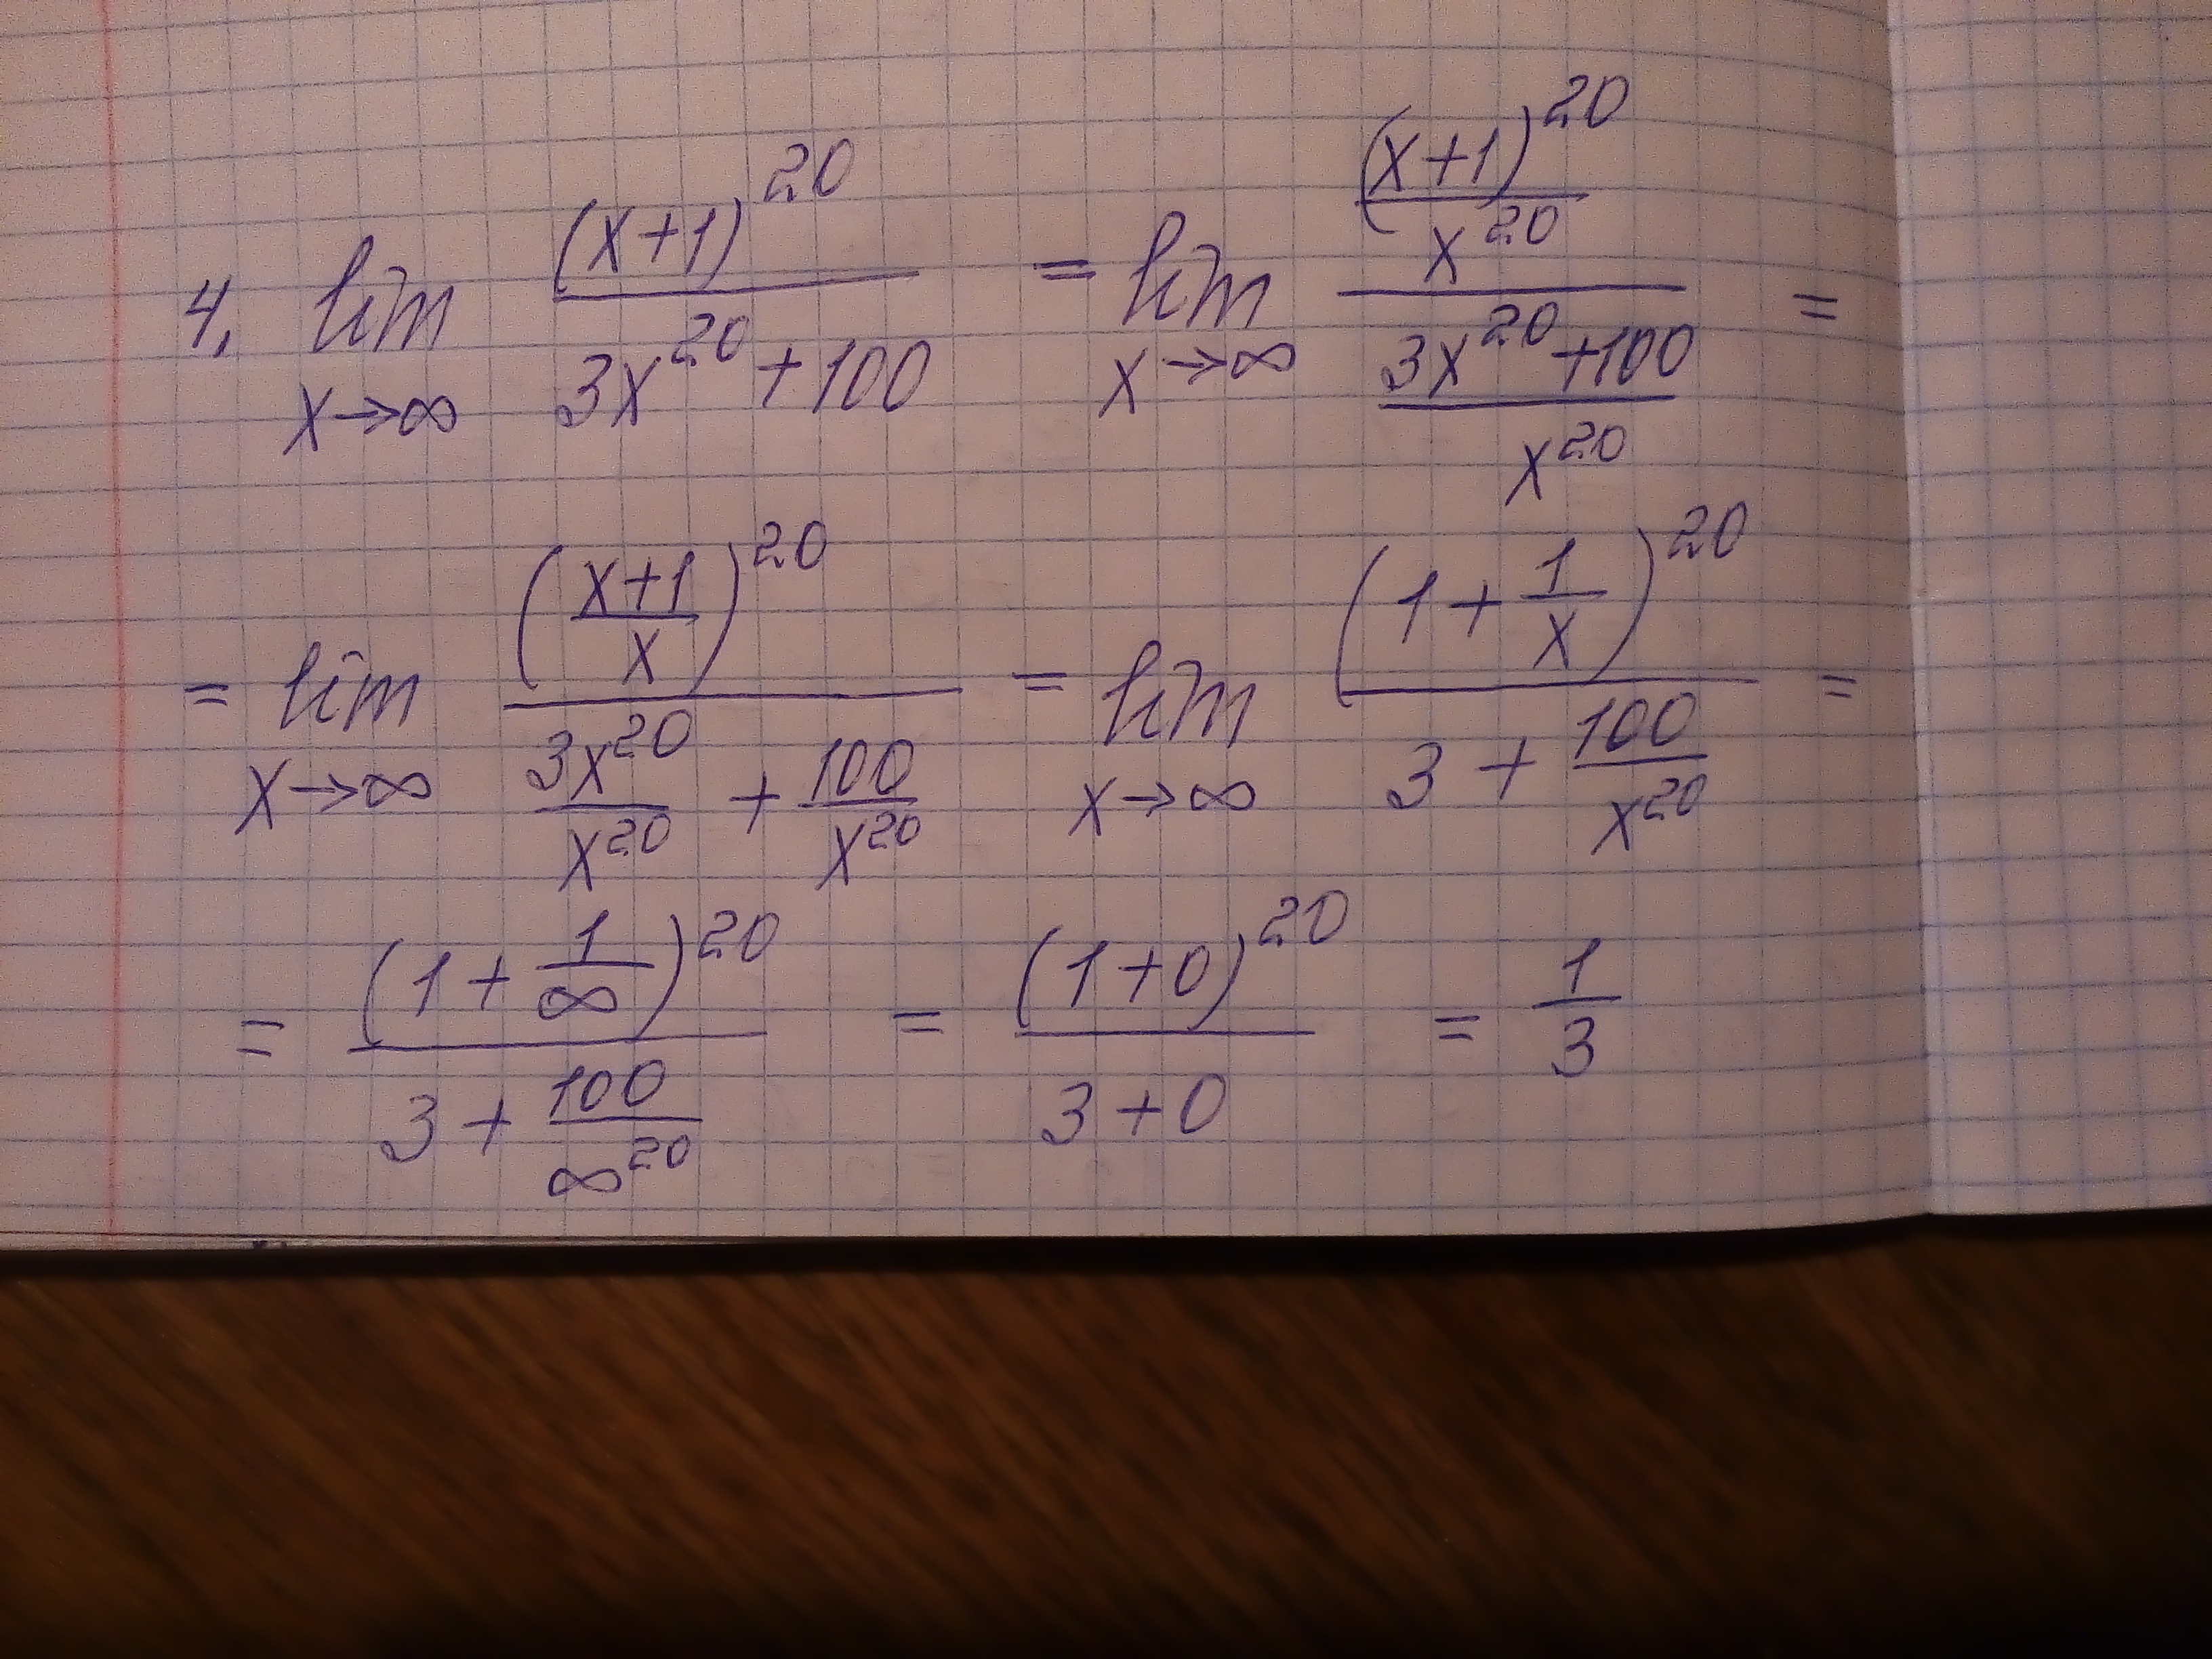 4. lim_{x→∞} (x+1)^20 / (3x^20 + 100) = lim_{x→∞} ((x+1)^20 / x^20) / ((3x^20 + 100) / x^20) =
= lim_{x→∞} ((x+1)/x)^20 / (3x^20/x^20 + 100/x^20) = lim_{x→∞} (1 + 1/x)^20 / (3 + 100/x^20) =
= (1 + 1/∞)^20 / (3 + 100/∞^20) = (1+0)^20 / (3+0) = 1/3